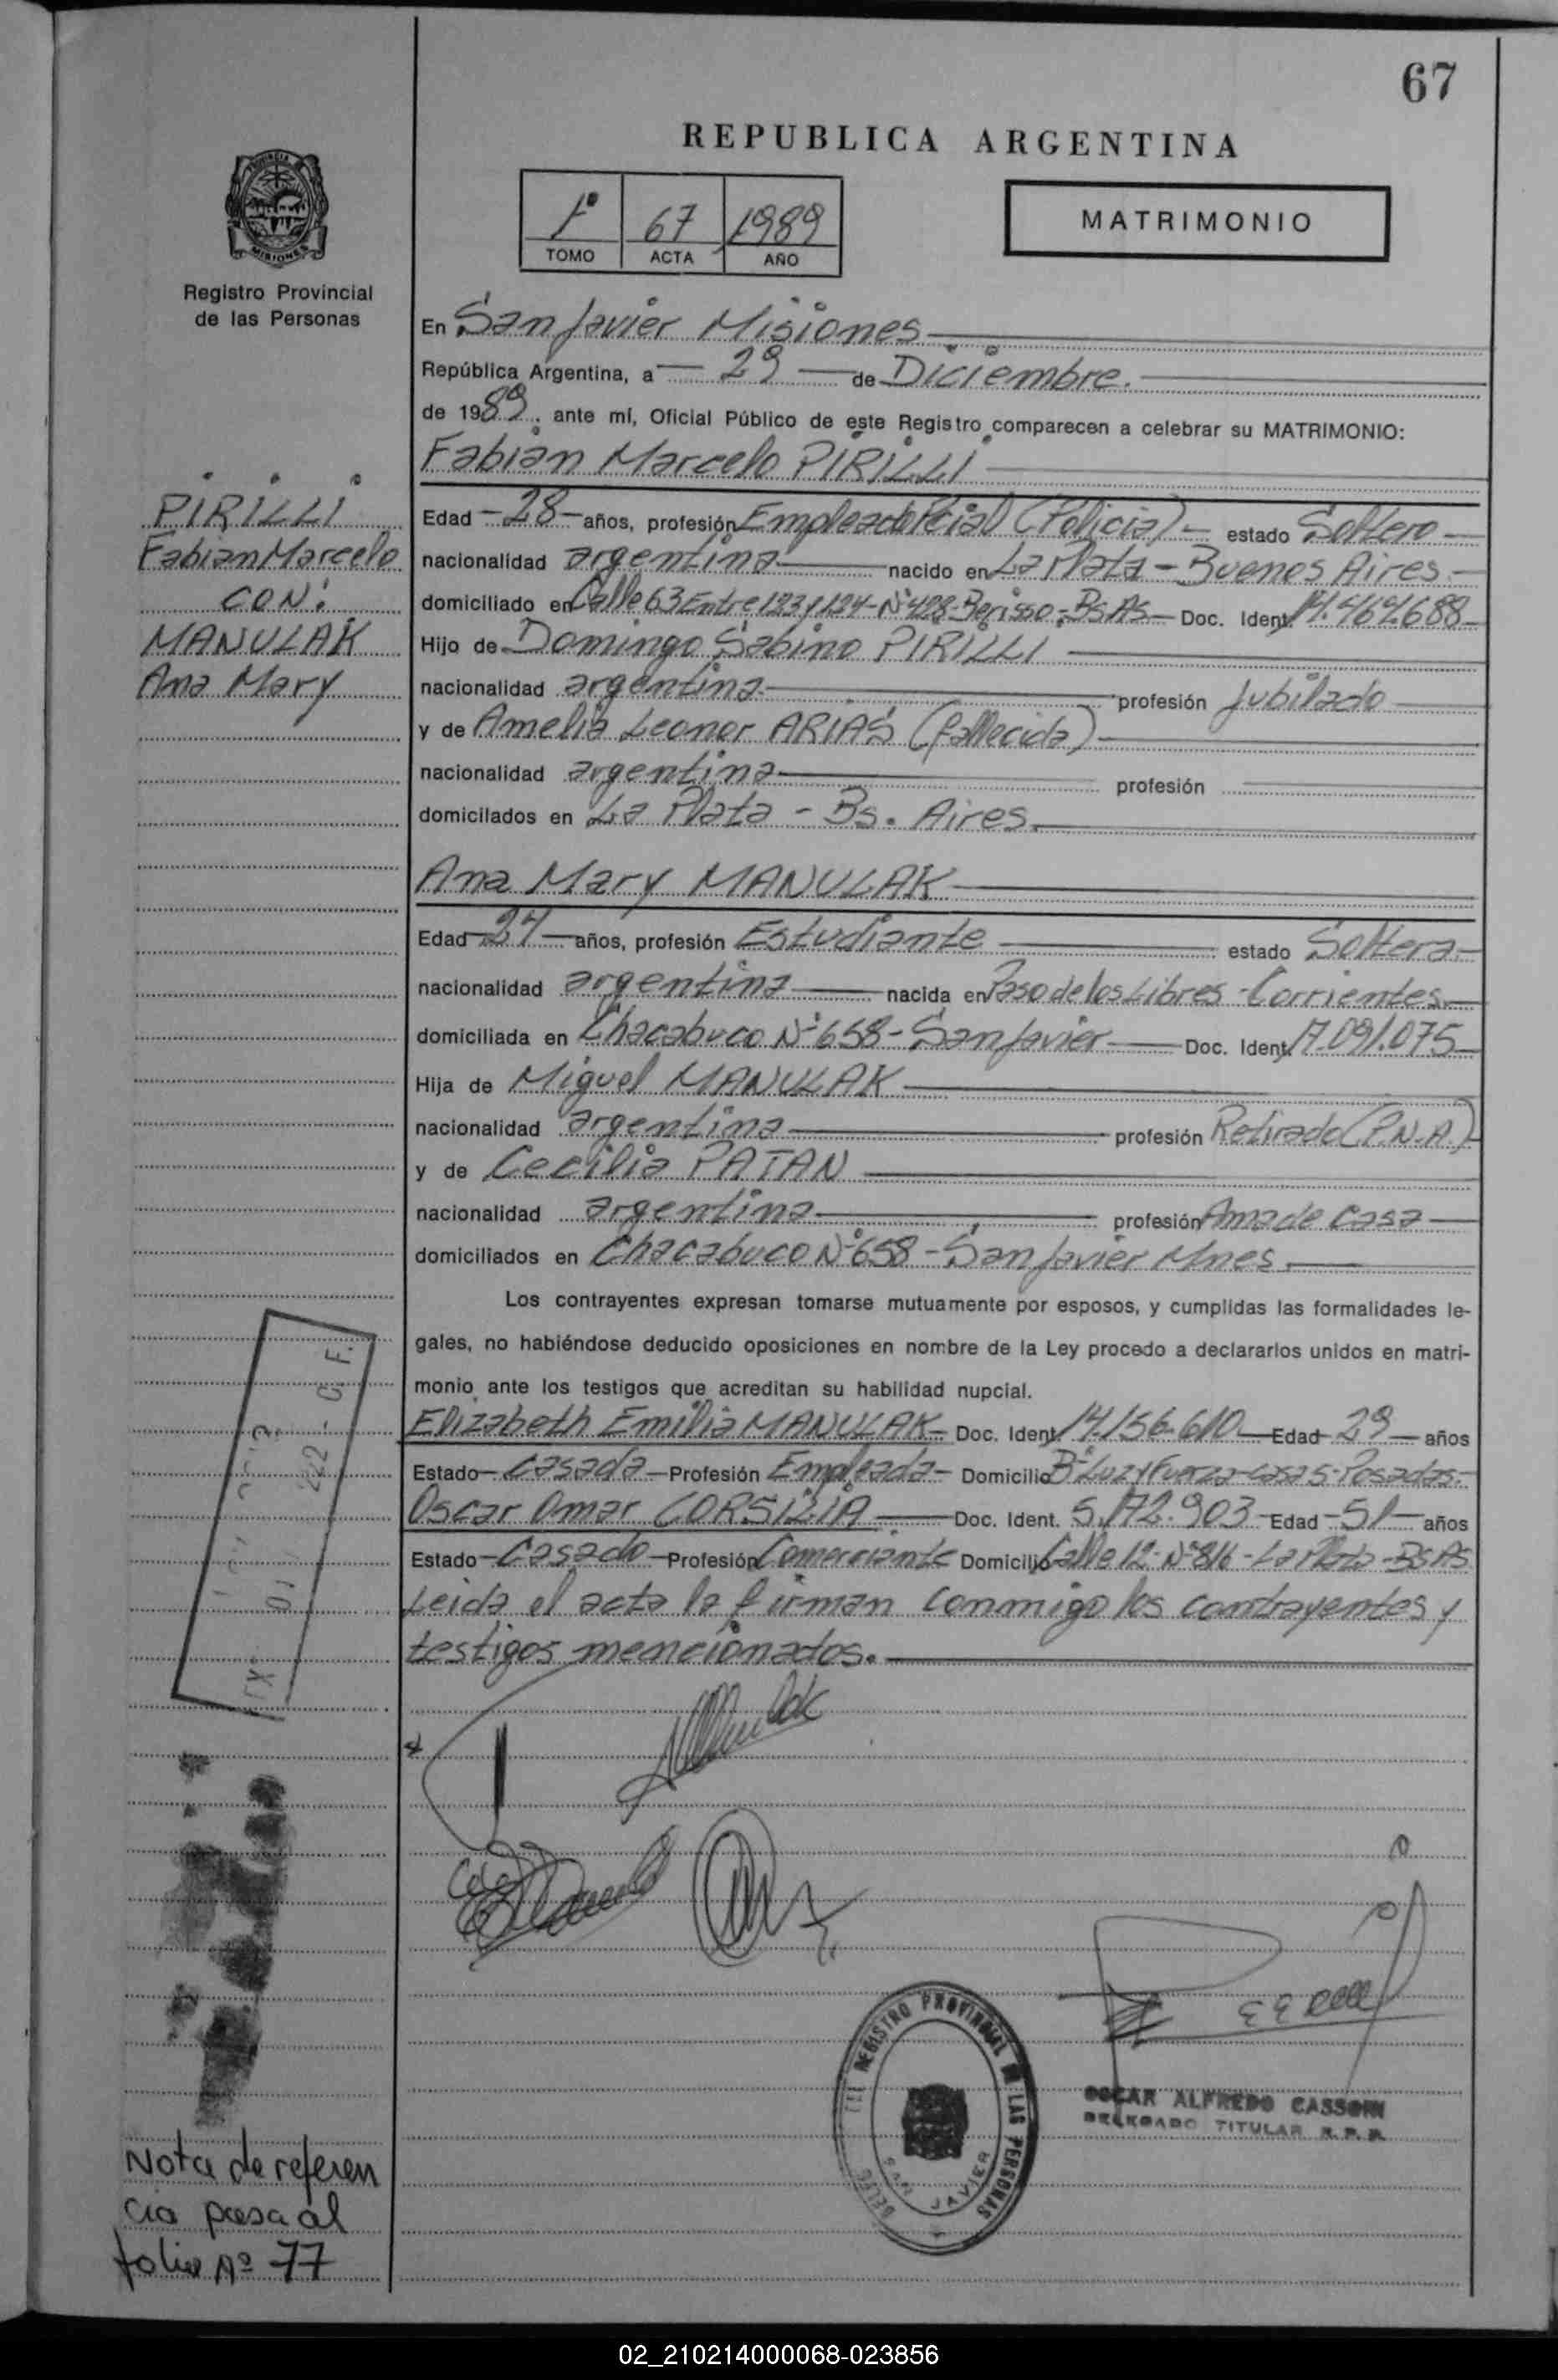 67
REPUBLICA ARGENTINA
1º 67 1989
TOMO ACTA AÑO
MATRIMONIO
PROVINCIA DE
MISIONES
Registro Provincial
de las Personas
En San Javier Misiones
República Argentina, a 29 de Diciembre.
de 1989, ante mí, Oficial Público de este Registro comparecen a celebrar su MATRIMONIO:
Fabián Marcelo PIRILLI
PIRILLI
Fabian Marcelo
CON:
MANULAK
Ana Mary
Edad -28- años, profesión Empleado Pcial (Policia) - estado Soltero
nacionalidad argentina nacido en La Plata - Buenos Aires
domiciliado en Calle 63 Entre 123 y 124 - Nº 428 - Berisso - Bs As - Doc. Ident. 14.464.688
Hijo de Domingo Sabino PIRILLI
nacionalidad argentina profesión Jubilado
y de Amelia Leonor ARIAS (fallecida)
nacionalidad argentina profesión
domicilados en La Plata - Bs. Aires.
Ana Mary MANULAK
Edad 24 años, profesión Estudiante estado Soltera
nacionalidad argentina nacida en Paso de los Libres - Corrientes
domiciliada en Chacabuco Nº 658 - San Javier Doc. Ident. 17.091.075
Hija de Miguel MANULAK
nacionalidad argentina profesión Retirado (P.N.A.)
y de Cecilia PATAN
nacionalidad argentina profesión Ama de casa
domiciliados en Chacabuco Nº 658 - San Javier Mnes.
Los contrayentes expresan tomarse mutuamente por esposos, y cumplidas las formalidades le-
gales, no habiéndose deducido oposiciones en nombre de la Ley procedo a declararlos unidos en matri-
monio ante los testigos que acreditan su habilidad nupcial.
Elizabeth Emilia MANULAK - Doc. Ident. 14.156.610 Edad 29 años
Estado - Casada - Profesión Empleada - Domicilio Bº Luz y Fuerza - casa 5 - Posadas -
Oscar Omar CORSIZIA Doc. Ident. 5.172.903 Edad - 51 - años
Estado - Casado - Profesión Comerciante Domicilio Calle 12 - Nº 816 - La Plata - Bs As
Leida el acta la firman conmigo los contrayentes y
testigos mencionados.
22 - G. F.
REGISTRO PROVINCIAL DE LAS PERSONAS
SAN JAVIER
OSCAR ALFREDO CASSONI
DELEGADO TITULAR R.P.P.
Nota de referen
cia pasa al
folio Nº 77
02_210214000068-023856